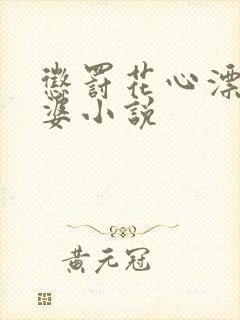 懲罰花心漂
婆小說
黃元冠